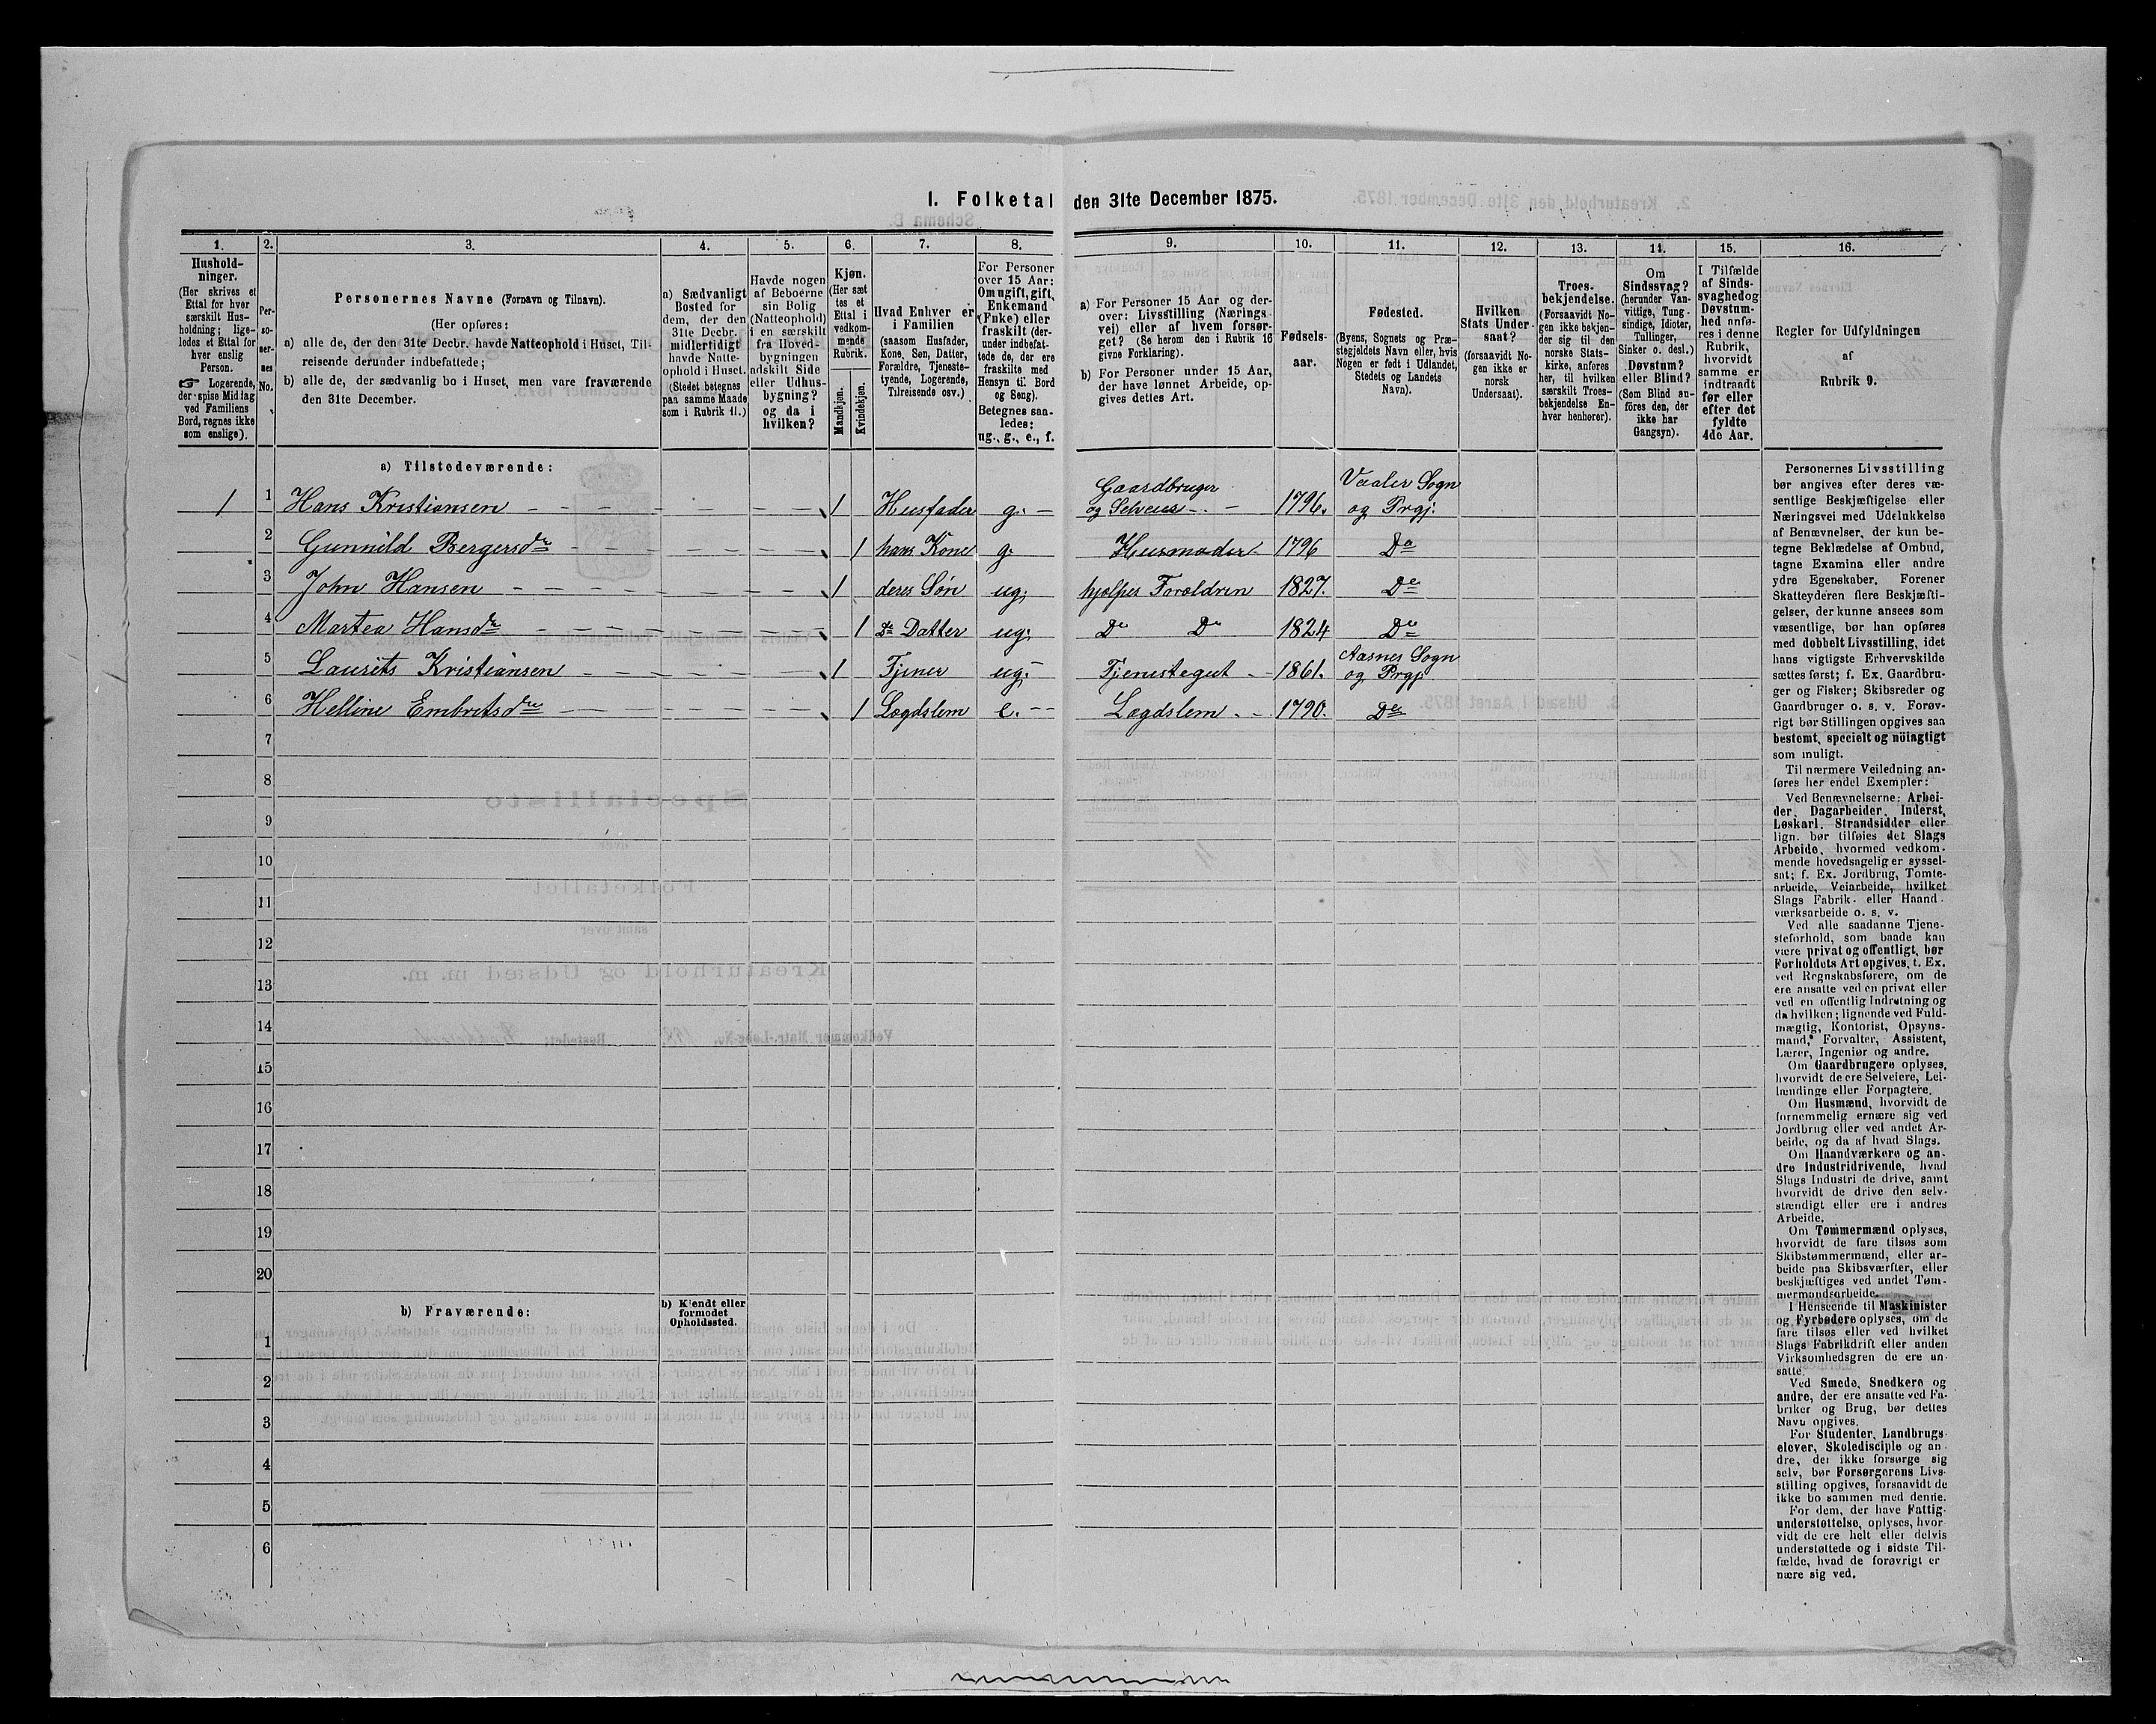 I. Folketal den 31te December 1875.
1. 2. 3. 4. 5. 6. 7. 8. 9. 10. 11. 12. 13. 14. 15. 16.
Hushold-
ninger.
(Her skrives et
Ettal for hver
særskilt Hus-
holdning; lige-
ledes et Ettal for
hver enslig
Person.
☞ Logerende,
der spise Middag
ved Familiens
Bord, regnes ikke
som enslige).
Per-
so-
ner-
nes
No.
Personernes Navne (Fornavn og Tilnavn).
(Her opføres:
a) alle de, der den 31te Decbr. havde Natteophold i Huset, Til-
reisende derunder indbefattede;
b) alle de, der sædvanlig bo i Huset, men vare fraværende
den 31te December.
a) Sædvanligt
Bosted for
dem, der den
31te Decbr.
midlertidigt
havde Natte-
ophold i Huset.
(Stedet betegnes
paa samme Maade
som i Rubrik 11.)
Havde nogen
af Beboerne
sin Bolig
(Natteophold)
i en særskilt
fra Hoved-
bygningen
adskilt Side
eller Udhus-
bygning?
og da i
hvilken?
Kjøn.
(Her sæt
tes et
Ettal i
vedkom-
mende
Rubrik.
Mandkjøn.
Kvindekjøn.
Hvad Enhver er
i Familien
(saasom Husfader,
Kone, Søn, Datter,
Forældre, Tjeneste-
tyende, Logerende,
Tilreisende osv.)
For Personer
over 15 Aar:
Om ugift, gift,
Enkemand
(Enke) eller
fraskilt (der-
under indbefat-
tede de, der ere
fraskilte med
Hensyn til Bord
og Seng).
Betegnes saa-
ledes:
ug., g., e., f.
a) For Personer 15 Aar og der-
over: Livsstilling (Nærings-
vei) eller af hvem forsør-
get? (Se herom den i Rubrik 16
givne Forklaring).
b) For Personer under 15 Aar,
der have lønnet Arbeide, op-
gives dettes Art.
Fødsels-
aar.
Fødested.
(Byens, Sognets og Præ-
stegjeldets Navn eller, hvis
Nogen er født i Udlandet,
Stedets og Landets
Navn).
Hvilken
Stats Under-
saat?
(forsaavidt No-
gen ikke er
norsk
Undersaat).
Troes-
bekjendelse.
(Forsaavidt No-
gen ikke bekjen-
der sig til den
norske Stats-
kirke, anføres
her, til hvilken
særskilt Troes-
bekjendelse En-
hver henhører).
Om
Sindssvag?
(herunder Van-
vittige, Tung-
sindige, Idioter,
Tullinger,
Sinker o. desl.)
Døvstum?
eller Blind?
(Som Blind an-
føres den, der
ikke har
Gangsyn).
I Tilfælde
af Sinds-
svaghed og
Døvstum-
hed anfø-
res i denne
Rubrik,
hvorvidt
samme er
indtraadt
før eller
efter det
fyldte
4de Aar.
Regler for Udfyldningen
af
Rubrik 9.
a) Tilstedeværende:
1 1 Hans Kristiansen 1 Husfader g. Gaardbruger og Selveier 1796. Vaaler Sogn og Prgj.
2 Gunnild Bergersdr 1 hans Kone g. Husmoder 1796 Do
3 John Hansen 1 deres Søn ug. hjælper Forældren 1827. Do
4 Martea Hansdr 1 Do Datter ug. Do Do 1824 Do
5 Laurits Kristiansen 1 Tjener ug. Tjenestegut 1861. Aasnes Sogn og Prgj
6 Helline Embretsdr 1 Lægdslem e. Lægdslem 1790. Do
7
8
9
10
11
12
13
14
15
16
17
18
19
20
b) Fraværende:
b) Kjendt eller
formodet
Opholdssted.
1
2
3
4
5
6
Personernes Livsstilling
bør angives efter deres væ-
sentlige Beskjæftigelse eller
Næringsvei med Udelukkelse
af Benævnelser, der kun be-
tegne Beklædelse af Ombud,
tagne Examina eller andre
ydre Egenskaber. Forener
Skatteyderen flere Beskjæfti-
gelser, der kunne ansees som
væsentlige, bør han opføres
med dobbelt Livsstilling, idet
hans vigtigste Erhvervskilde
sættes først; f. Ex. Gaardbru-
ger og Fisker; Skibsreder og
Gaardbruger o. s. v. Forøv-
rigt bør Stillingen opgives saa
bestemt, specielt og nöiagtigt
som muligt.
Til nærmere Veiledning an-
føres her endel Exempler:
Ved Benævnelserne: Arbei-
der, Dagarbeider, Inderst,
Løskarl, Strandsidder eller
lign. bør tilføies det Slags
Arbeide, hvormed vedkom-
mende hovedsagelig er syssel-
sat; f. Ex. Jordbrug, Tomte-
arbeide, Veiarbeide, hvilket
Slags Fabrik- eller Haand-
værksarbeide o. s. v.
Ved alle saadanne Tjene-
steforhold, som baade kan
være privat og offentligt, bør
Forholdets Art opgives, t. Ex.
ved Regnskabsførere, om de
ere ansatte ved en privat eller
ved en offentlig Indretning og
da hvilken; lignende ved Fuld-
mægtig, Kontorist, Opsyns-
mand, Forvalter, Assistent,
Lærer, Ingeniør og andre.
Om Gaardbrugere oplyses,
hvorvidt de ere Selveiere, Lei-
lændinge eller Forpagtere.
Om Husmænd, hvorvidt de
fornemmelig ernære sig ved
Jordbrug eller ved andet Ar-
beide, og da af hvad Slags.
Om Haandværkere og an-
dre Industridrivende, hvad
Slags Industri de drive, samt
hvorvidt de drive den selv-
stændigt eller ere i andres
Arbeide.
Om Tømmermænd oplyses,
hvorvidt de fare tilsøs som
Skibstømmermænd, eller ar-
beide paa Skibsværfter, eller
beskjæftiges ved andet Tøm-
mermandsarbeide.
I Henseende til Maskinister
og Fyrbødere oplyses, om de
fare tilsøs eller ved hvilket
Slags Fabrikdrift eller anden
Virksomhedsgren de ere an-
satte.
Ved Smede, Snedkere og
andre, der ere ansatte ved Fa-
briker og Brug, bør dettes
Navn opgives.
For Studenter, Landbrugs-
elever, Skoledisciple og an-
dre, der ikke forsørge sig
selv, bør Forsørgerens Livs-
stilling opgives, forsaavidt de
ikke bo sammen med denne.
For dem, der have Fattig-
understøttelse, oplyses, hvor-
vidt de ere helt eller delvis
understøttede og i sidste Til-
fælde, hvad de forøvrigt er
nære sig ved.